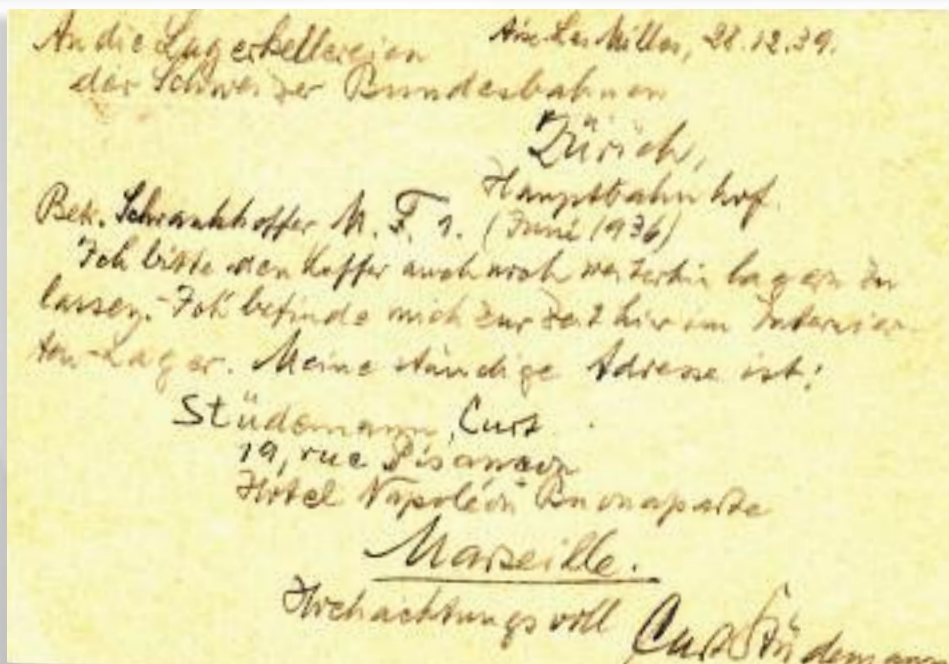 An die Lagerkellereien Aix Les Milles, 28.12.39.
der Schweizer Bundesbahnen
Zürich,
Hauptbahnhof.
Betr. Schrankkoffer M. F. 1. (Juni 1936)
Ich bitte den Koffer auch noch weiterhin lagern zu
lassen. - Ich befinde mich zur Zeit hier im Internier-
ten-Lager. Meine ständige Adresse ist:
Stüdemann, Curt
19, rue
Hotel Napoléon Buonaparte
Marseille.
Hochachtungsvoll Curt Stüdemann